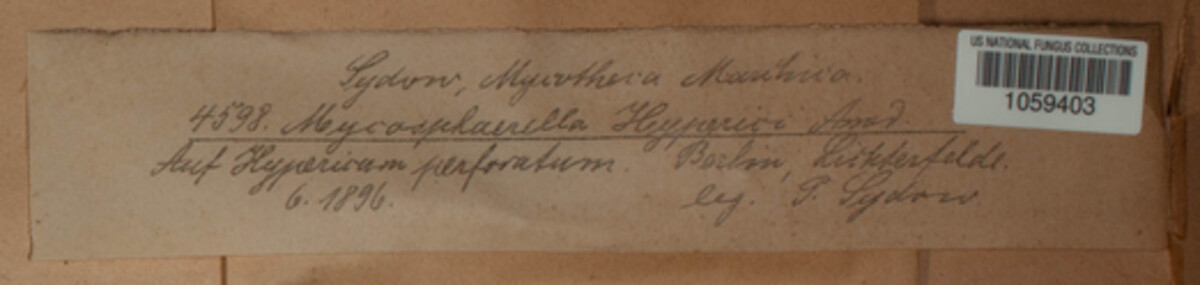 Sydow, Mycotheca Marchica.
4598. Mycosphaerella Hyperici Awd
Auf Hypericum perforatum. Berlin, Lichterfelde.
6. 1896. leg. P. Sydow
US NATIONAL FUNGUS COLLECTIONS
1059403